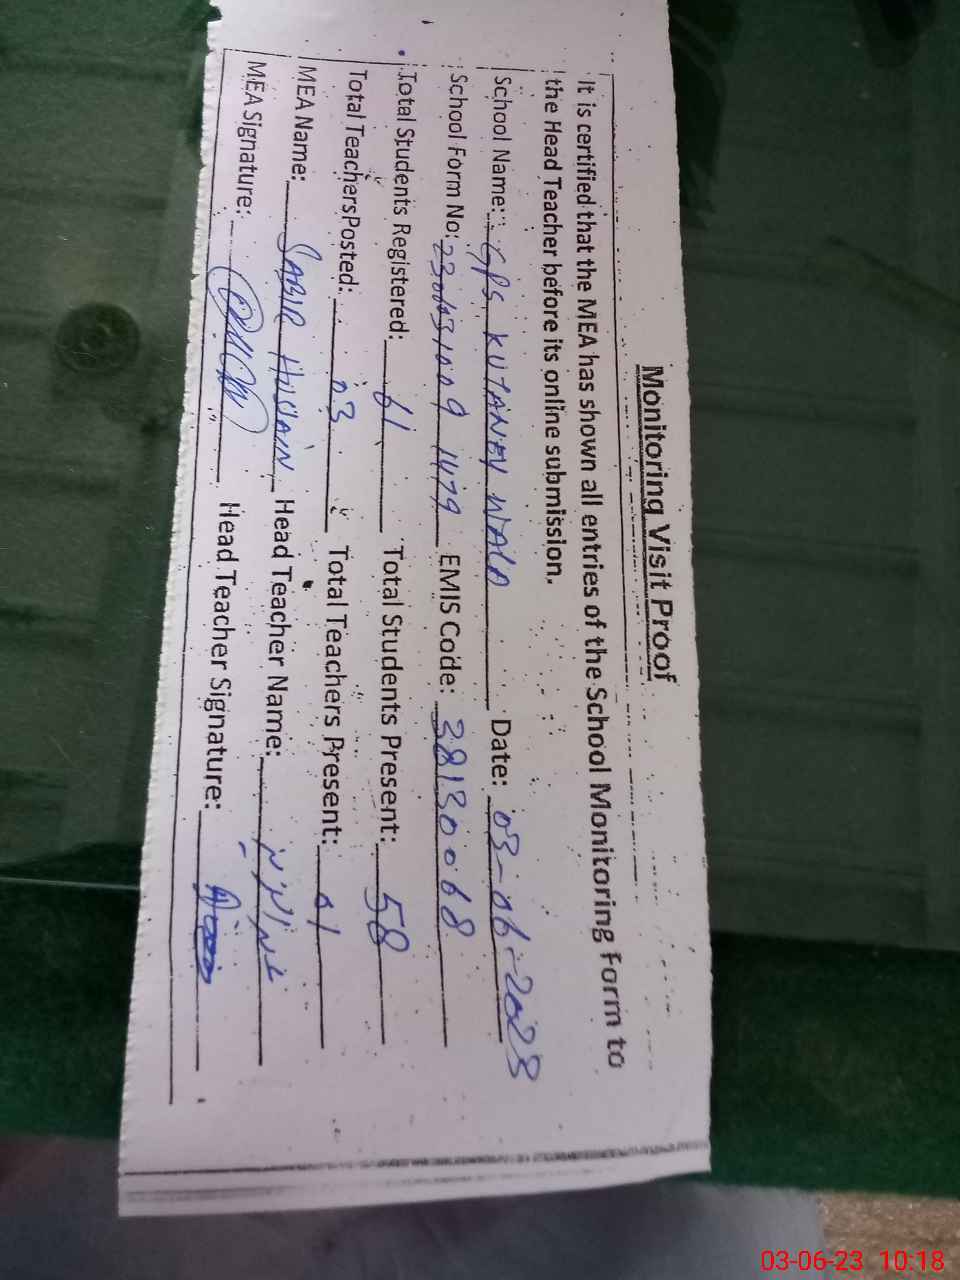 Monitoring Visit Proof
It is certified that the MEA has shown all entries of the School Monitoring Form to
the Head Teacher before its online submission.
School Name: GPS KUTANEY WALA Date: 03-06-2023
School Form No: 1479 EMIS Code: 38130068
Total Students Registered: 61 Total Students Present: 58
Total Teachers Posted: 03 Total Teachers Present: 01
MEA Name: SABIR HUSSAIN Head Teacher Name:
MEA Signature: Head Teacher Signature:
03-06-23 10:18